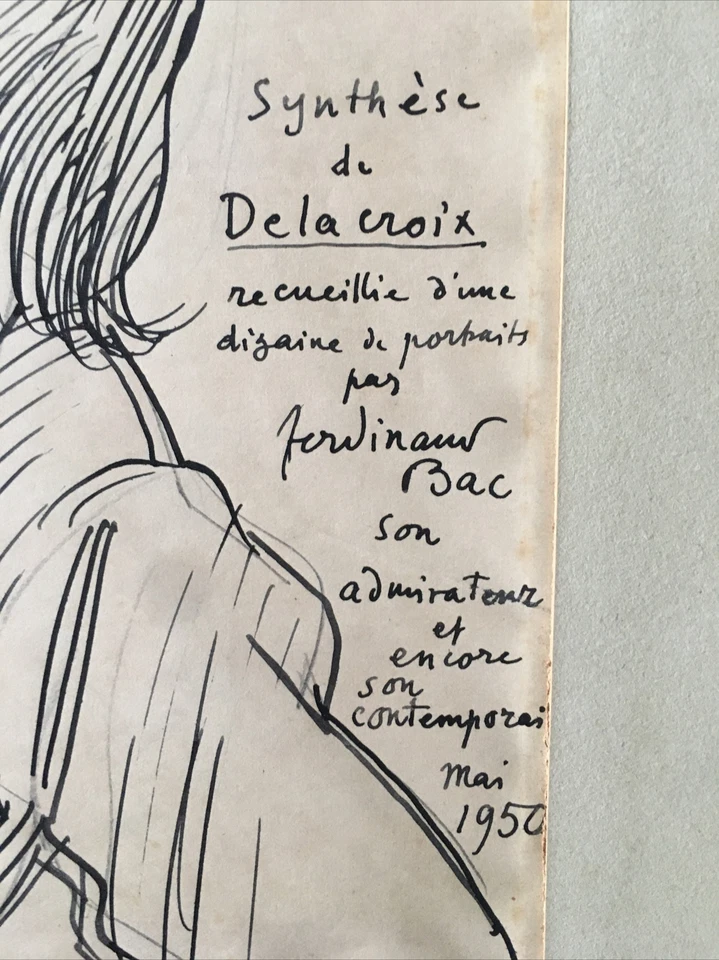 Synthèse
de
Delacroix
recueillie d'une
dizaine de portraits
par
Ferdinand
Bac
son
admirateur
et
encore
son
contemporai
mai
1950